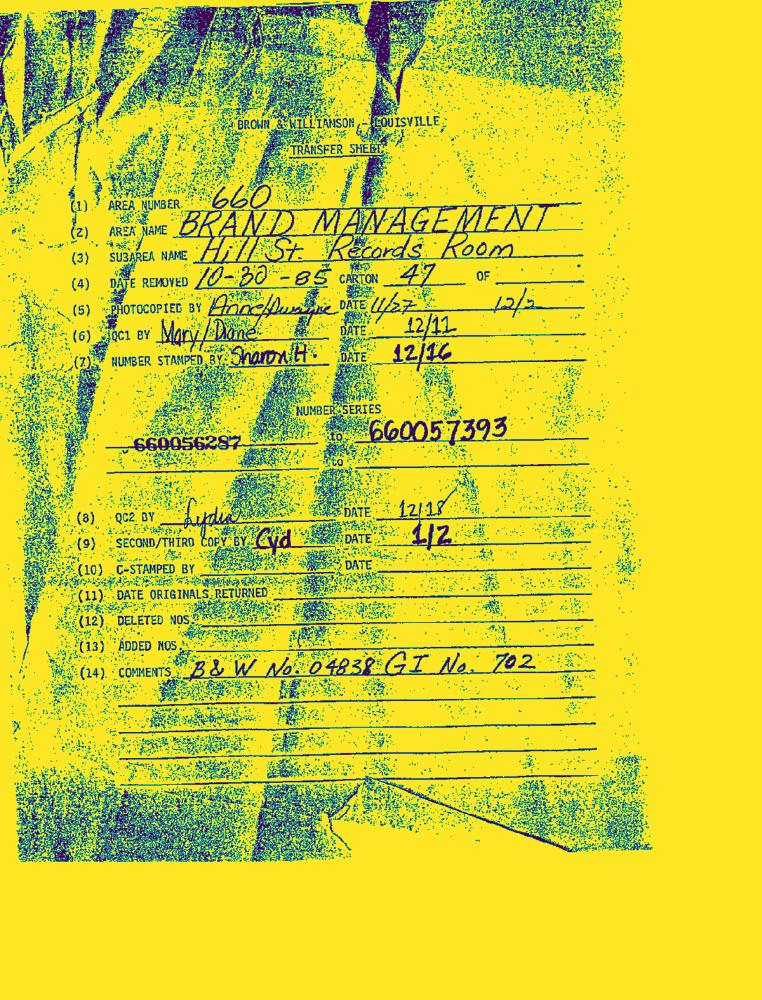 BROWN & WILLIAMSON - LOUISVILLE
TRANSFER SHEET
(1) AREA NUMBER 660
(2) AREA NAME BRAND MANAGEMENT
(3) SUBAREA NAME Hill St. Records Room
(4) DATE REMOVED 10-30-85 CARTON 47 OF
(5) PHOTOCOPIED BY Anne/Dwayne DATE 11/27 12/2
(6) QC1 BY Mary/Diane DATE 12/11
(7) NUMBER STAMPED BY Sharon H. DATE 12/16
NUMBER SERIES
660056287 to 660057393
to
(8) QC2 BY Lydia DATE 12/18
(9) SECOND/THIRD COPY BY Cyd DATE 1/2
(10) C-STAMPED BY DATE
(11) DATE ORIGINALS RETURNED
(12) DELETED NOS.
(13) ADDED NOS.
(14) COMMENTS B & W No. 04838 GI No. 702